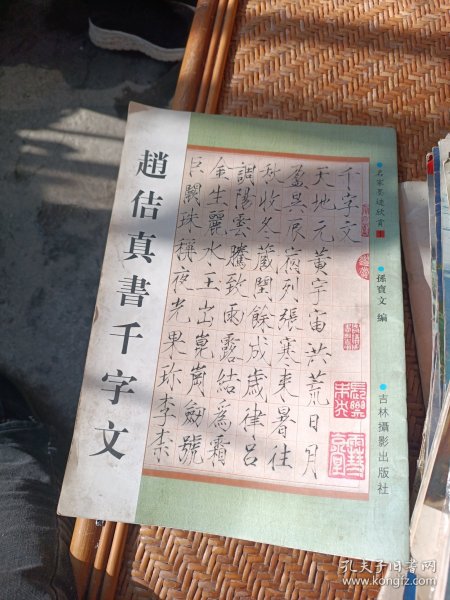 趙佶真書千字文
千字文
天地元黄宇宙洪荒日月
盈昃辰宿列張寒来暑往
秋收冬藏閏餘成歲律吕
調陽雲騰致雨露結為霜
金生麗水玉出崑崗劍號
巨闕珠稱夜光果珍李柰
●名家墨迹欣賞
●孫寶文 編
●吉林攝影出版社
孔夫子旧书网
www.kongfz.com